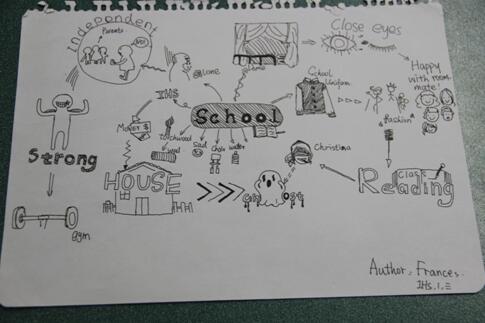 Independent
Parents
NO!
Close eyes
School
Uniform
Happy
with room
mate!
@Lome
IHS
School
"fashion"
MONEY $
Sad
water
Christina
Strong
HOUSE
Class
Reading
Ghost
gym
Author. Frances.
IHS.1.三